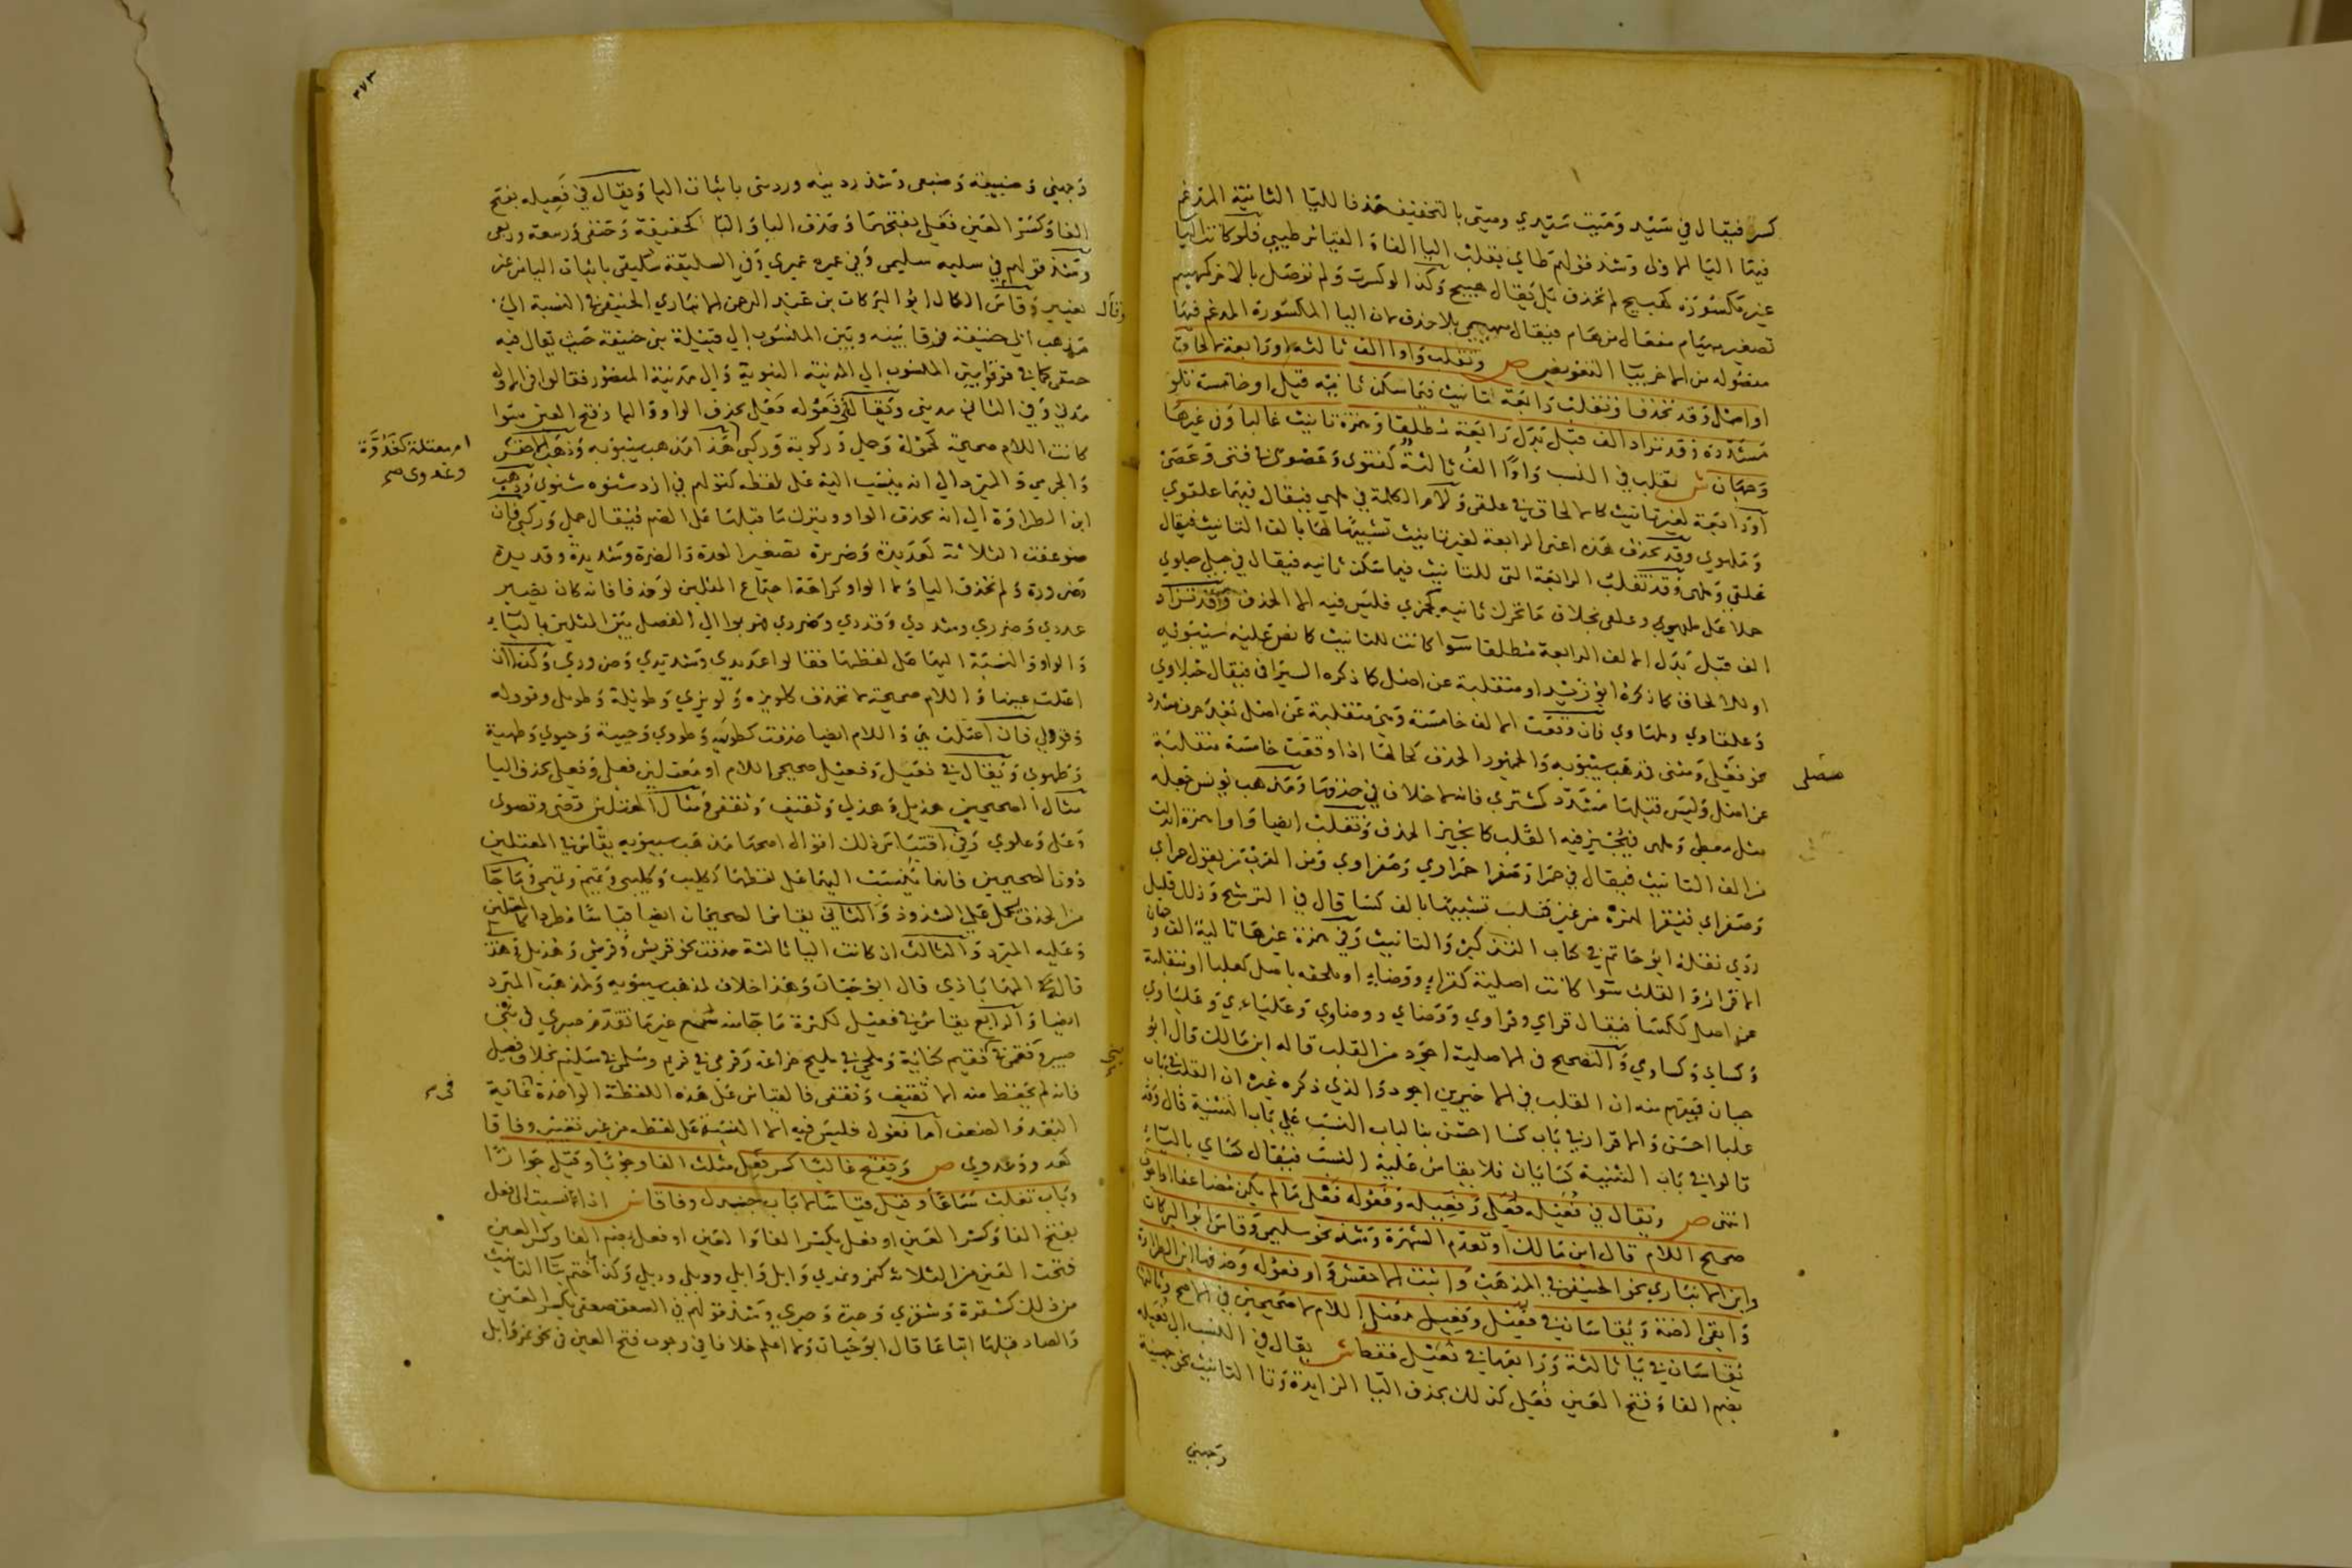 كسرا فيقال في سَيّد وَمَيّت سَيْدي وميتى بالتخفيف حَذفا لليَا الثانيَة المدغم
فيهَا اليَا الاولى وَشذ قولهم طاي بقلب اليا الفا وَ القيَاس طيبي فلو كانت اليَا
غير مَكسُورَة كهبيخ لم تحذف بَل يُقال هبيخي وَكذا لو كسرت وَلم توصَل بالاخر كمهييم
تصغير مهيَام مفعَال من هَام فيقال مهييمي بلا حذف لان اليا المكسُورة المدغم فيهَا
مفصُوله من الاخر بيَا التعويض ص وَتقلب وَاوا الف ثالثه اوْ رَابعة لالحاق
او اصْل وَقد تحذف وَتقلب رَابعَة لتانيث فيمَا سكن ثانيْه قيل او خامسَة تلو
مشدّدة وَقد تزاد الف قبل بَدل رَابعَة مُطلقا وَهمزة تانيث غالبا وَفي غيرهَا
وَجهَان ش تقلب في النسب وَاوًا الفٌ ثالثةٌ كفتوى وَعَصَوى في فتى وَعَصَى
اوْ رَابعَة لغير تانيث كالالحاق في علقى وَلام الكلمة في ملهى فيقال فيهمَا علقوي
وَملهوي وقد تحذف هَذه اعنى الرابعة لغير تانيث تشبيهًا لهَا بالف التانيث فيقال
علقي وَملهى وَقد تقلب الرابعَة التى للتانيث فيما سَكن ثانيه فيقال في حبلى حبلوي
حملا عَلى ملهوي وعلقى بخلاف مَا تحرك ثانيه كجمزي فليَس فيه الا الحذف وَقد تزاد
الف قبل بَدل الالف الرابعة مُطلقا سَوا كانت للتانيث كما نص عَليْه سيْبَوَيْه
او للالحاق كما ذكرَهُ ابو زيْد او منقلبة عن اصْل كما ذكره السيرافى فيقال حُبلاوي
وَعلقاوي وملهَاوي فان وَقعت الالف خامسَة وَهي منقلبة عَن اصْل بعد حرف مشدد
نحو مُعَلّى وَمثنى فمذهَب سيْبوَيْه وَالجمهُور الحذف كحالهَا اذا وقعَت خامسَة منقلبَة
عن اصْل وَليَس قبلهَا مُشدّد كمشتري فانه لا خلاف في حذفهَا وَمذهَب يُونس جعله
مثل معطى وَملهى فيُجيز فيه القَلب كما يجيز الحذف وَتقلب ايضا وَاوا همزة ابدلت
من الف التانيث فيقال في حَمرا وَصَفرا حَمراوي وَصَفراوي وَمن العَرب من يقول حمراي
وَصَفراي فيقر الهمزة من غير قلب تشبيهًا بالف كسَا قال في الترشيح وَذلك قليل
ردي نقلهُ ابُو حَاتم في كتاب التذكير وَالتانيث وَفي همزة غيرهَا تالية الف وجهان
الاقرار وَ القلب سَوا كانت اصلية كقراءٍ ووضاءٍ او ملحقه باصل كعلبا او منقلبة
عن اصل ككسَا فيقال قراي وقراوي وَوُضاي ووضاوي وَعلبَاءي وَعلبَاوي
وَكسَاي وَكساوي وَالتصحيح في الاصلية اجوَد من القلب قاله ابن مَالك قال ابوُ
حيان فيفهم منه ان القلب في الاخيرين اجود وَالذي ذكره غيره ان القلب في بَاب
علبا احسَن وَالاقرار في بَاب كسَا احسَن بنا لباب النسَب عَلى بَاب التثنية قال وَقد
قالوا في بَاب التثنية كسَايَان فلا يقاس عَليه النسَب فيُقال كسَاي باليَاء
انتهى ص ويُقال في فُعَيْله فُعَلى وَفعِيله وَفعُوله فَعَلى مَا لم يكن مُضاعفا او
صحيح اللام قال ابن مَالك او تعدم الشهرَة وَشذ نحو سليمى وَقاس ابو البركات
وابن الانبَاري نحو الحنيفى في المذهَب وَاثبت الاخفش وَاو فعُوله وَحذفهَا ابن الطراوة
وَابقى الضمة وَيُقاسَان في فُعيْل وَفعِيل معتل اللام لا صَحيحيَن في الاصح وَثالثها
يُقاسَان في يَا ثالثة وَرَابعهَا في فُعيْل فقط ش يقال في النسب الى فُعَيله
بضم الفا وَفتح العَين فُعَلى كذلك بحذف اليَا الزايدة وَتا التانيث نحو جهينة
وَجهني
وَجهني وَضبيعة وَضبعى وَشذ ردينه وردينى باثبات اليا وَيقال في فَعِيله بفتح
الفا وَكسْر العَين فَعَلى بفتحهمَا وَحذف اليا وَالتا كحنيفة وَحَنفى وَربيعة وربعى
وَشذ قولهم في سليمه سليمى وَفي عميرة عميري وَفي السليقة سَليقى باثبات اليا من غير
وقال تغيير وَقاس الكمال ابُو البَركات بن عَبد الرحمن الانباري الحنيفى في النسبة الى
مَذهب ابى حنيفة فرقا بَينه وبَين المنسُوب الى قبيْلة بنى حنيفة حَيث يقال فيه
حنفى كما في فرقوا بين المنسُوب الى المدينة النبوية وَالى مَدينة المنصُور فقالوا في الاول
مَدني وَفي الثاني مديني وَيقال في فَعُوله فَعَلى بحذف الواو وَالها وَفتح العين سَوا
كانت اللام صحيحة كحَمُولة وَحملى وَركوبة وَركبى هَذا مذهب سيْبوَيْه وَذهَب الاخفش
وَالجرمي وَ المبرد الى انه ينسَب اليه عَلى لفظه كقولهم في ازد شنوه شنوي وَذهب
ابن الطراوَة الى انه تحذف الواو ويترك مَا قبلهَا عَلى الضم فيُقال حملى وَركبى فان
ضوعفت الثلاثة كعَديدة وَضريرة تصغير العدة وَالضرة وشديدة وقديدة
وَضرورة وَلم تحذف اليا وَلا الواو كراهَة اجتمَاع المثلين لو حذفا فانه كان يصير
عددي وَضرري وشددي وَقددي وَضرري فهربوا الى الفصل بَين المثلين باليَاء
وَالواو وَ النسبَة اليهَا عَلى لفظهَا فقالوا عَديدي وَشديدي وَضروري وَكذا ان
اعتلت عينها وَاللام صحيحة لا تحذف كلويزه وَلويزي وَطويْلة وَطويلى وقوولة
وَقوولي فان اعتلت هي وَاللام ايضا حذفت كطويه وَطووي وَحيية وَحيوي وَطهية
وَطهوي وَيُقال في فُعَيل وَفعِيْل صحيحى اللام او معتلين فعلى وَفعلى بحذف اليا
مثال الصحيحين هذيل وَهذلي وَثقيف وَثقفى وَمثال المعتلين قصَى وقصوى
وَعلى وَعلوي وَفي اقتيَاس ذلك اقوال اصحهَا مَذهَب سيبويه يقاس في المعتلين
دون الصحيحين فانما يُنسَب اليهمَا عَلى لفظهمَا ككليب وَكليبى وَتميم وتميمى وَمَا جَا
من الحذف يحمل عَلى الشذوذ وَالثاني يقاس في الصحيحان ايضا قيَاسًا مطردا كالمعتلين
وَعَليه المبَرد وَالثالث ان كانت اليَا ثالثة حذفت نحو قريش وَقرشى وَهذيل وَهذلى
قاله المهَابَاذي قال ابوُ حَيَان وَهَذا خلاف لمذهَب سيبوَيْه وَلمذهَب المبَرد
ايضا وَالرابع يقاس في فُعيْل لكثرة مَا جَا منه سُمع غير مَا تقدم صبرى في بنى
صبير وفقمى في فقيم كنانة وَملحى في مليح خزاعة وَقرمى في قريم وسُلمى في سَليم بخلاف فعيل
فانه لم يحفظ منه الا ثقيف وَثقفى فالقيَاس عَلى هَذه اللفظة الواحدة في غاية
البُعد وَالضعف اما فعُول فليَس فيه الا النسبَة عَلى لفظه من غير تغيير وفاقا
كعدو وَعدوي ص وَيفتح غالبًا كسر فعِل مثلث الفا وجُوبًا وَقيَل جَوازًا
وَباب تغلب سَمَاعًا وقيْل قيَاسًا لا بَاب جنَدل وفاقا ش اذا نسبت الى فعل
بفتح الفا وَكسْر العَين او فعل بكسْر الفا وَالعَين او فعل بضم الفا وكسر العين
فتحت العَين من الثلاثه كنمر ونمري وَابل وَابلى ودئل ودئلى وَكذا ما ختم بتَا التانيث
من ذلك كشقرة وَشقري وَحبرة وَحبري وَشذ قولهم في الصعق صعقى بكسر العَين
وَالصاد قبلهَا اتباعًا قال ابُو حَيَان وَلا اعلم خلافا في وجوب فتح العين في نحو نمر وَابل
ام معتلة كعَدُوَّة
وعدوى صح
في
معلى
٣٧٣